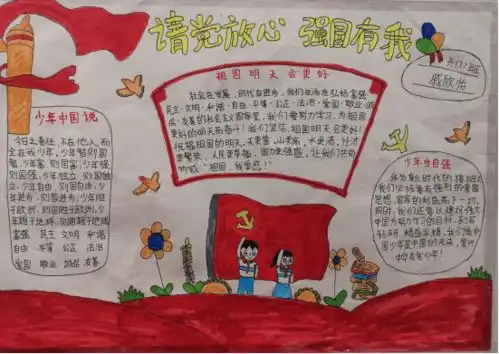 请党放心 强国有我
六(7)班
戚欣怡
祖国明天会更好
社会在发展，时代在进步，我们在沐浴弘扬富强
民主·文明·和谐·自由·平等·公正·法治·爱国·敬业·诚
信·友善的社会主义国家里，我们要努力学习，为祖国
更好的明天而奋斗！我们坚信，祖国明天会更好！
祝福祖国的明天，天更蓝，山更高，水更清，经济
更繁荣，人民更幸福，国力更强盛，让我们共同
祖国，我爱您！
少年中国说
今日之责任，不在他人，而
全在我少年，少年智则国
智，少年富，则国富，少年强
则国强，少年独立，则国独
立，少年自由，则国自由，少
年进步，则国进步，少年胜
于欧洲，则国胜于欧洲，少
年雄于地球，则国雄于地球
富强 民主 文明 和谐
自由 平等 公正 法治
爱国 敬业 诚信 友善
少年当自强
作为新时代的接班人
我们必须要有强烈的爱国
思想，国家的利益高于一切，
同时，我们还要以建设强大
中国为努力学习的目标，刻苦
钻研，精益求精，我们是中
国少年是中国的未来，爱我
中华有我少年！